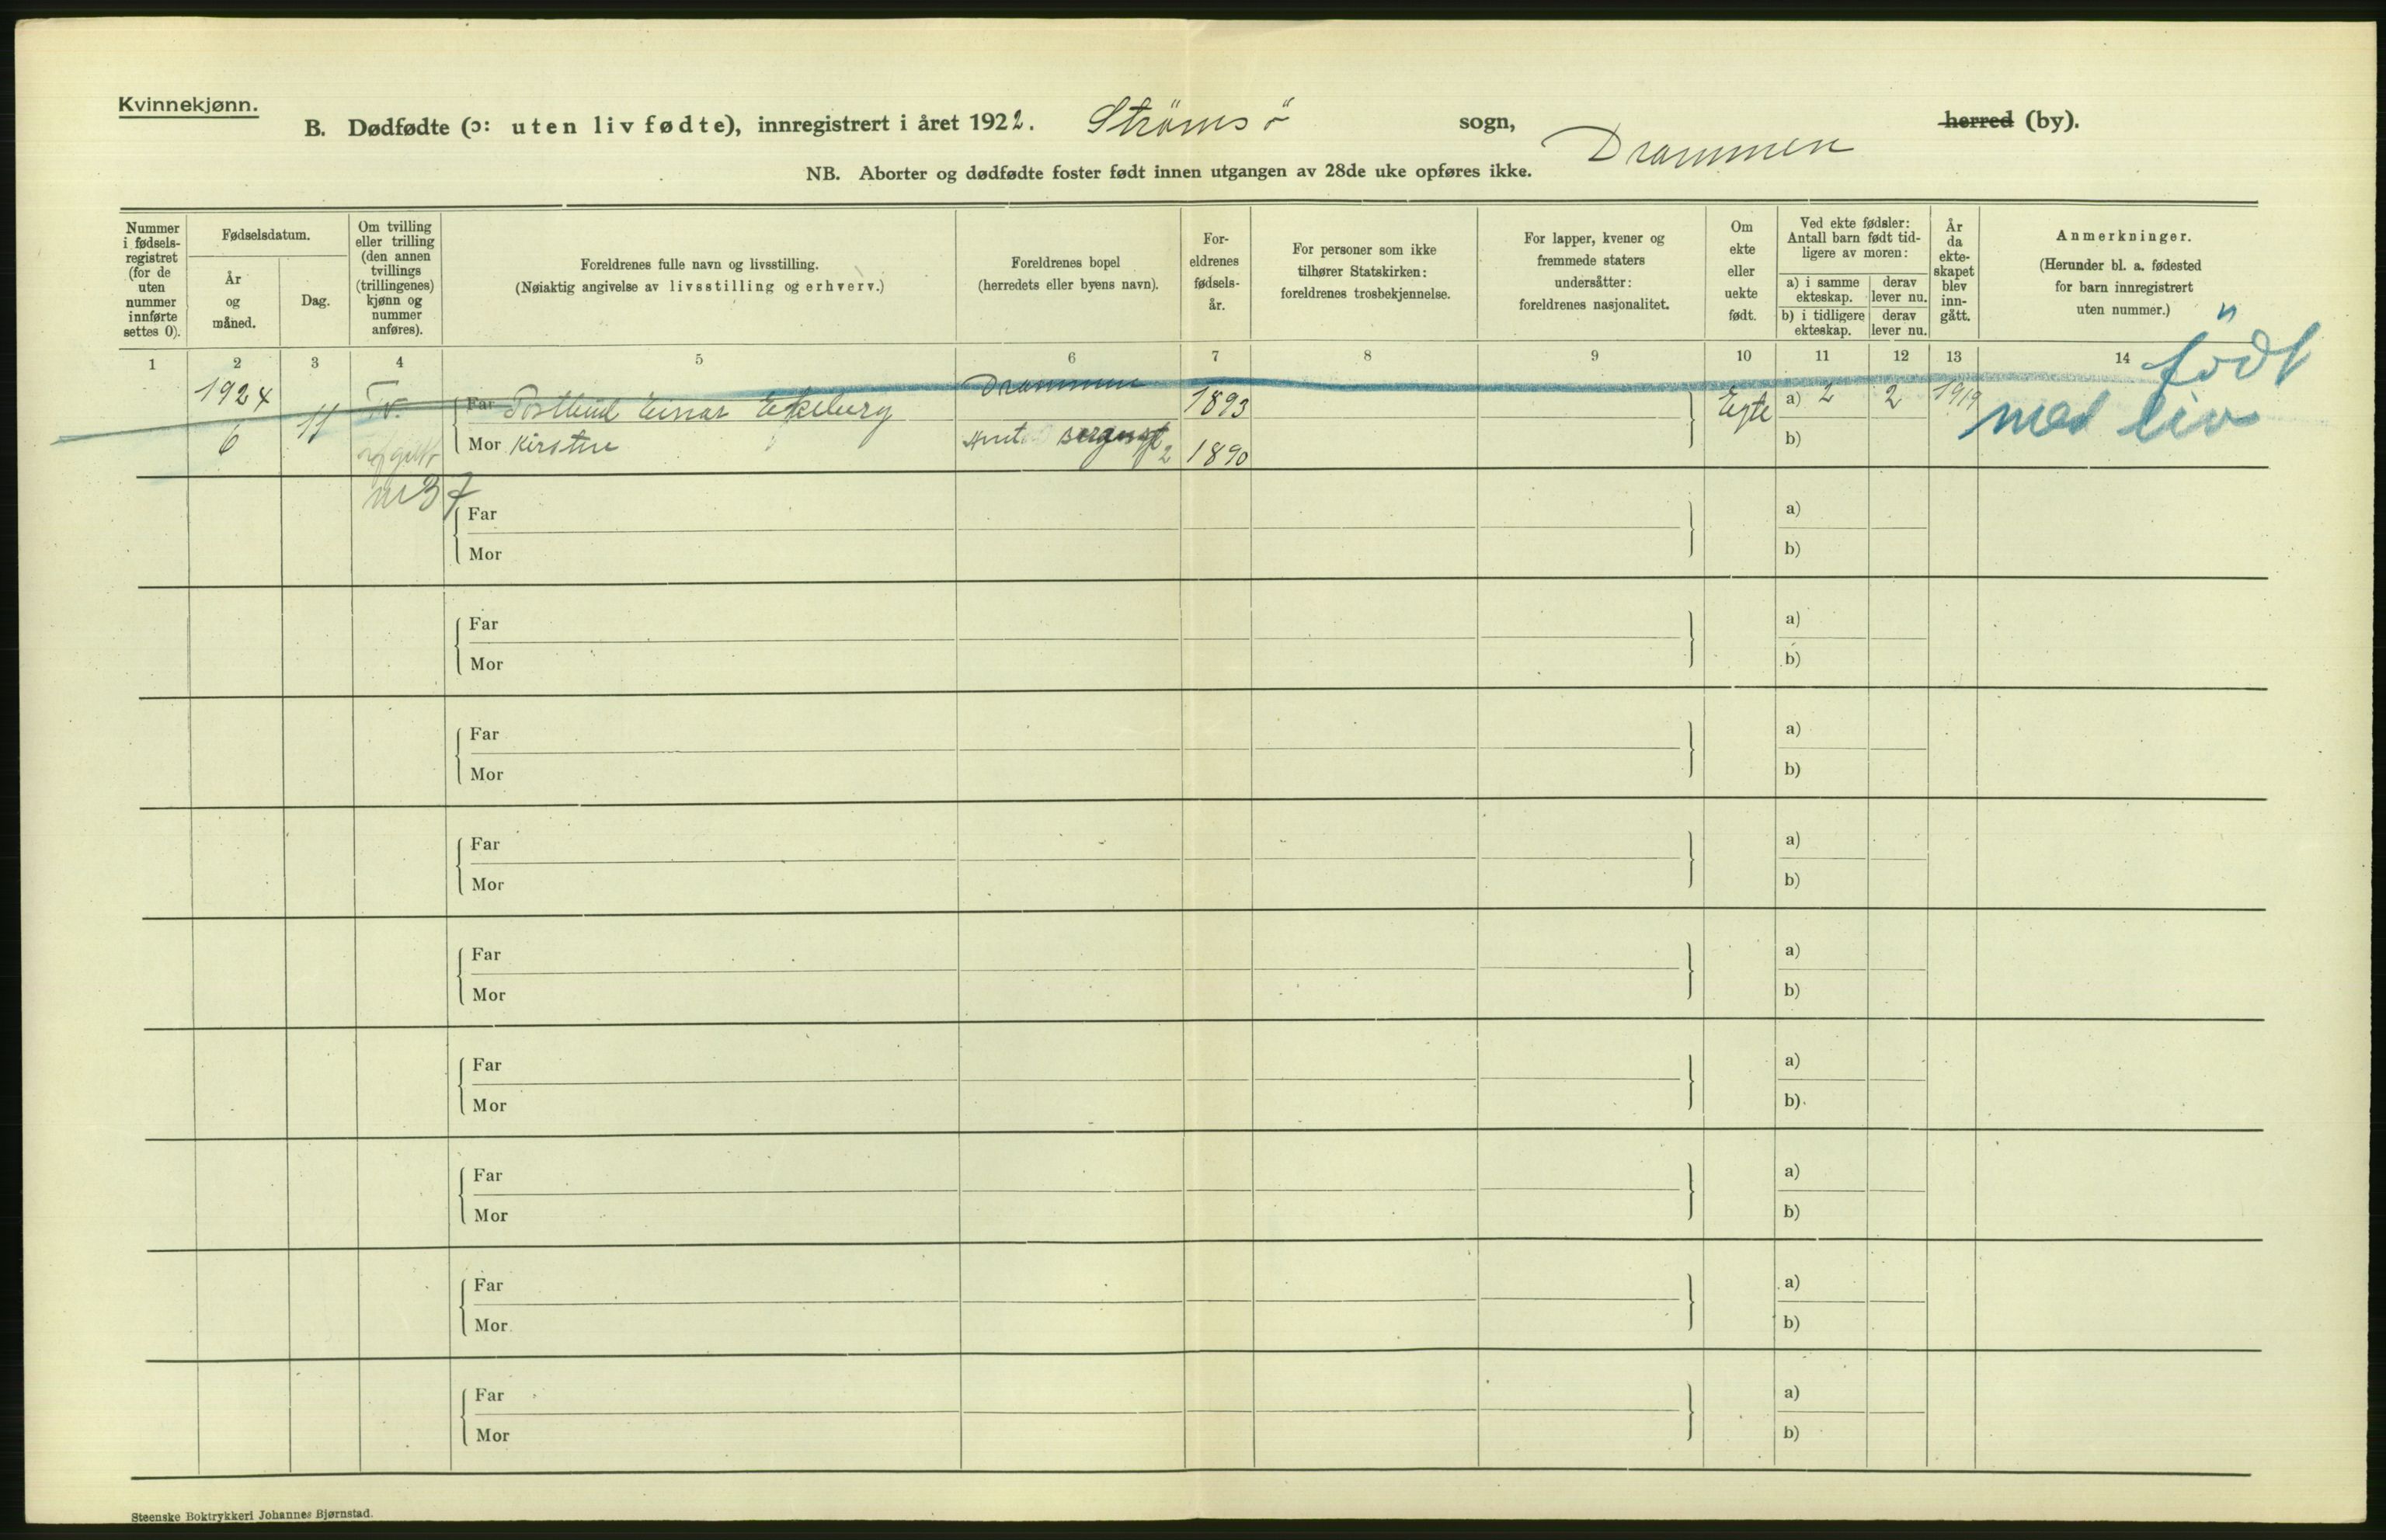 Kvinnekjønn.
B. Dødfødte (ɔ: uten liv fødte), innregistrert i året 1922. Strömsö sogn, Drammen herred (by).
NB. Aborter og dødfødte foster født innen utgangen av 28de uke opføres ikke.
Nummer i fødsels-registret (for de uten nummer innførte settes 0).
Fødselsdatum.
År og måned.
Dag.
Om tvilling eller trilling (den annen tvillings (trillingenes) kjønn og nummer anføres).
Foreldrenes fulle navn og livsstilling.
(Nøiaktig angivelse av livsstilling og erhverv.)
Foreldrenes bopel
(herredets eller byens navn).
For-eldrenes fødsels-år.
For personer som ikke tilhører Statskirken: foreldrenes trosbekjennelse.
For lapper, kvener og fremmede staters undersåtter: foreldrenes nasjonalitet.
Om ekte eller uekte født.
Ved ekte fødsler: Antall barn født tid-ligere av moren:
a) i samme ekteskap.
derav lever nu.
b) i tidligere ekteskap.
derav lever nu.
År da ekte-skapet blev inn-gått.
Anmerkninger.
(Herunder bl. a. fødested for barn innregistrert uten nummer.)
1 2 3 4 5 6 7 8 9 10 11 12 13 14
1924 6 11 Tv. nr 37
Far Postbud Einar Ekeberg Drammen 1893 Egte a) 2 2 1919 født
Mor Kirstine 2 1890 b) med liv
Far a)
Mor b)
Far a)
Mor b)
Far a)
Mor b)
Far a)
Mor b)
Far a)
Mor b)
Far a)
Mor b)
Far a)
Mor b)
Far a)
Mor b)
Far a)
Mor b)
Steenske Boktrykkeri Johannes Bjørnstad.